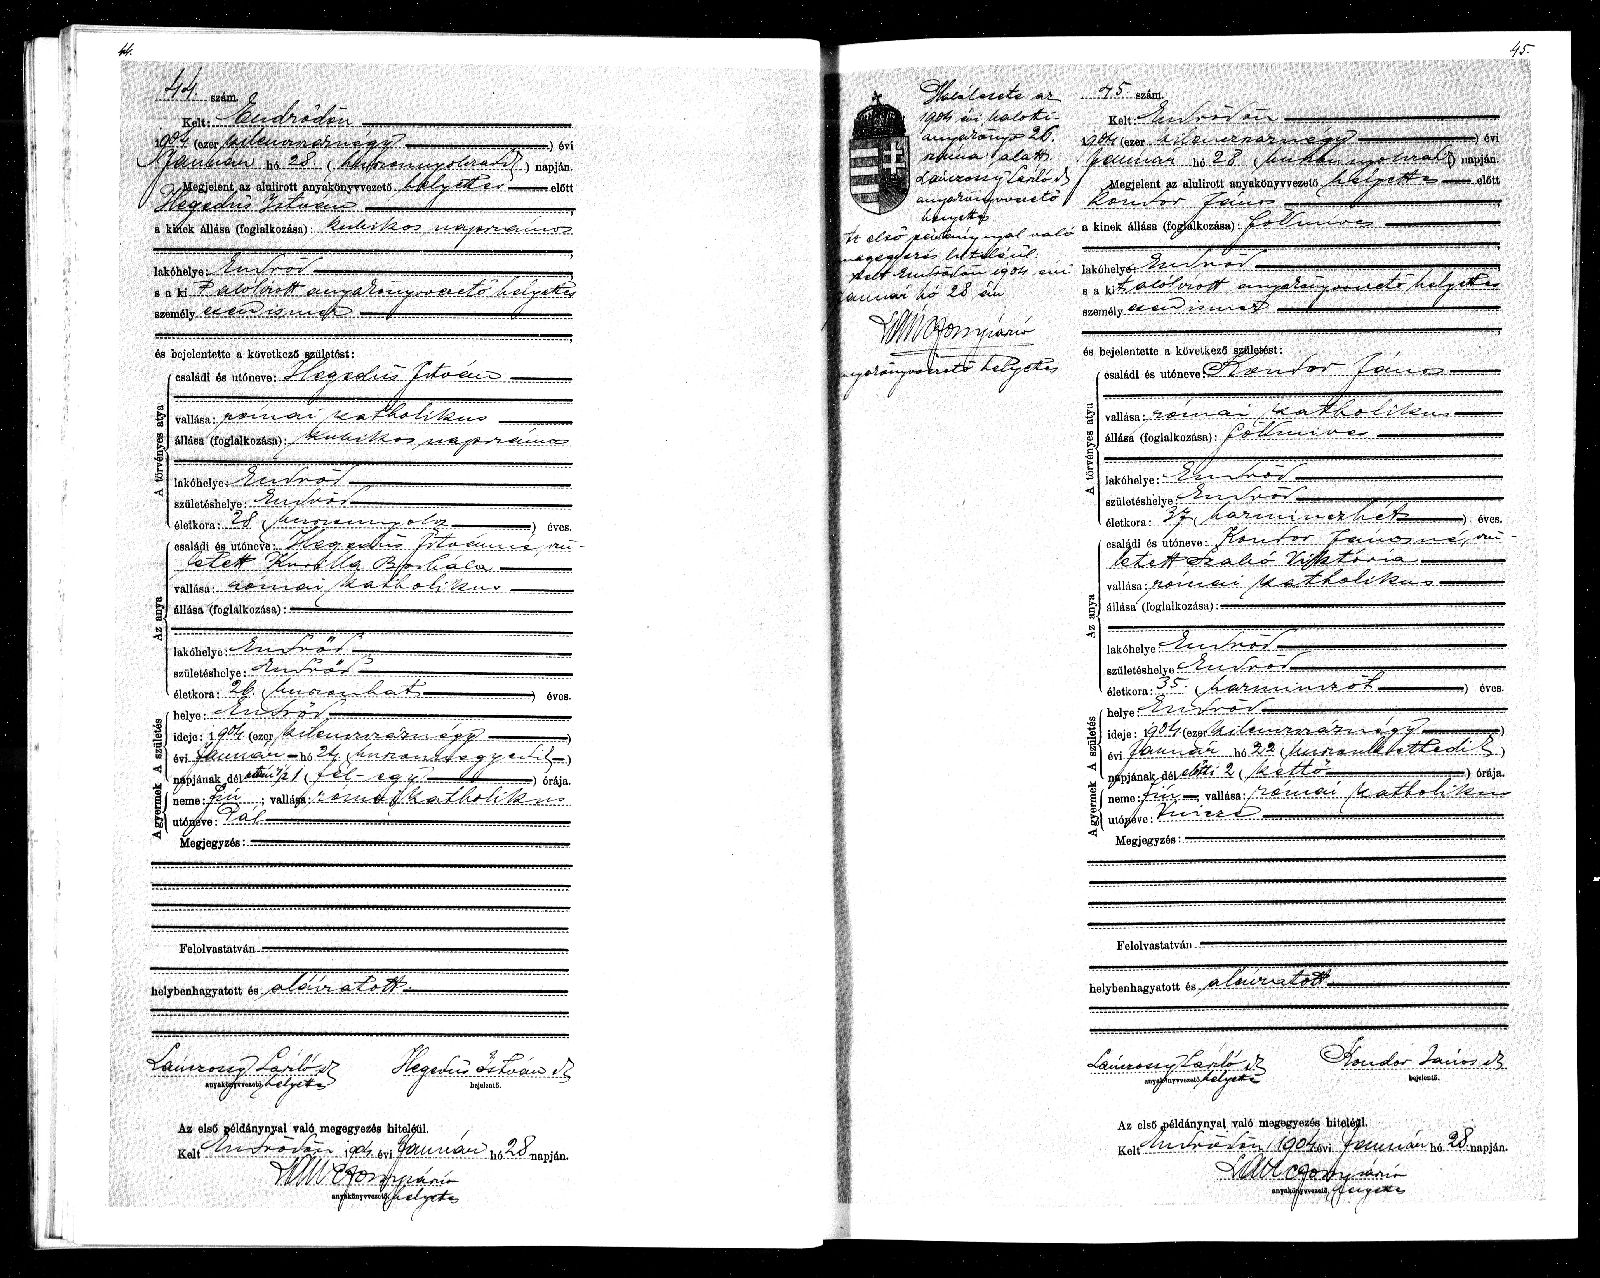 44.
44. szám.
Kelt: Endrődön
1904 (ezer kilencszáznégy) évi
Január hó 28 (huszonnyolcadik) napján.
Megjelent az alulirott anyakönyvvezető helyettes előtt
Hegedüs István
a kinek állása (foglalkozása): kubikos napszámos
lakóhelye: Endrőd
s a ki t alolirott anyakönyvvezető helyettes
személy
és bejelentette a következő születést:
A törvényes atya
családi és utóneve: Hegedüs István
vallása: római katholikus
állása (foglalkozása): kubikos napszámos
lakóhelye: Endrőd
születéshelye: Endrőd
életkora: 28 (huszonnyolc) éves.
Az anya
családi és utóneve: Hegedüs Istvánné, szü-
letett Borbála
vallása: római katholikus
állása (foglalkozása):
lakóhelye: Endrőd
születéshelye: Endrőd
életkora: 26 (huszonhat) éves.
A gyermek A születés
helye: Endrőd
ideje: 1904 (ezer kilencszáznégy)
évi Január hó 24 (
napjának dél előtti 1/2 1 (fél-egy) órája.
neme: fiú; vallása: római katholikus
utóneve: Pál
Megjegyzés:
Felolvastatván
helybenhagyatott és aláíratott.
László
anyakönyvvezető helyettes
Hegedüs István
bejelentő.
Az első példánynyal való megegyezés hiteléül.
Kelt Endrődön 1904 évi Január hó 28 napján.
anyakönyvvezető helyettes
45.
Halálesete az
1904 évi halotti
anyakönyv 26.
száma alatt
László
anyakönyvvezető
helyettes
Az első példánynyal való
megegyezés hiteléül.
Kelt Endrődön 1904 évi
január hó 28 án
anyakönyvvezető helyettes
45 szám.
Kelt: Endrődön
1904 (ezer kilencszáznégy) évi
Január hó 28 ( ) napján.
Megjelent az alulirott anyakönyvvezető helyettes előtt
Kondor János
a kinek állása (foglalkozása): földmives
lakóhelye: Endrőd
s a ki t alolirott anyakönyvvezető helyettes
személy
és bejelentette a következő születést:
A törvényes atya
családi és utóneve: Kondor János
vallása: római katholikus
állása (foglalkozása): földmives
lakóhelye: Endrőd
születéshelye: Endrőd
életkora: 37 (harminczhét) éves.
Az anya
családi és utóneve: Kondor Jánosné, szü-
letett Szabó Viktória
vallása: római katholikus
állása (foglalkozása):
lakóhelye: Endrőd
születéshelye Endrőd
életkora: 35 (harminczöt) éves.
A gyermek A születés
helye: Endrőd
ideje: 1904 (ezer kilencszáznégy)
évi Január hó 22 (huszonkettedik)
napjának dél előtti 2 (kettő) órája.
neme: fiú, vallása: római katholikus
utóneve: Vincze
Megjegyzés:
Felolvastatván
helybenhagyatott és aláíratott
László
anyakönyvvezető helyettes
Kondor János
bejelentő.
Az első példánynyal való megegyezés hiteléül.
Kelt Endrődön, 1904 évi Január hó 28 napján.
anyakönyvvezető, helyettes